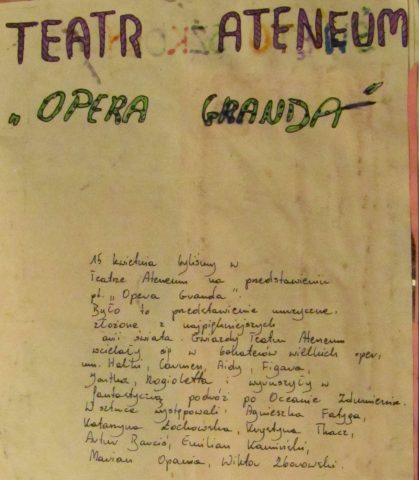 TEATR ATENEUM
„OPERA GRANDA”
15 kwietnia byliśmy w
Teatrze Ateneum na przedstawieniu
pt. „Opera Granda".
Było to przedstawienie muzyczne
złożone z najpiękniejszych
arii świata. Gwiazdy Teatru Ateneum
wcielały się w bohaterów wielkich oper,
m.in. Halki, Carmen, Aidy, Figara,
Jontka, Rogioletta i wyruszyły w
fantastyczną podróż po Oceanie Zdumienia.
W sztuce występowali: Agnieszka Fatyga,
Katarzyna Żochowska, Krystyna Tkacz,
Artur Barciś, Emilian Kamiński,
Marian Opania, Wiktor Zborowski.